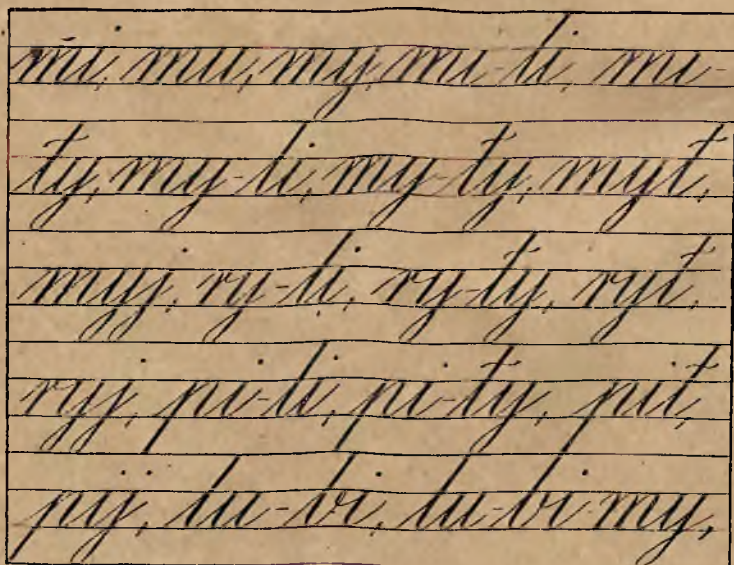 mi, mu, my, mi-li, mi-
ły, my-li, my-ły, mył,
myj, ry-li, ry-ły, rył,
ryj, pi-li, pi-ły, pił,
pij, lu-bi, lu-bi-my,